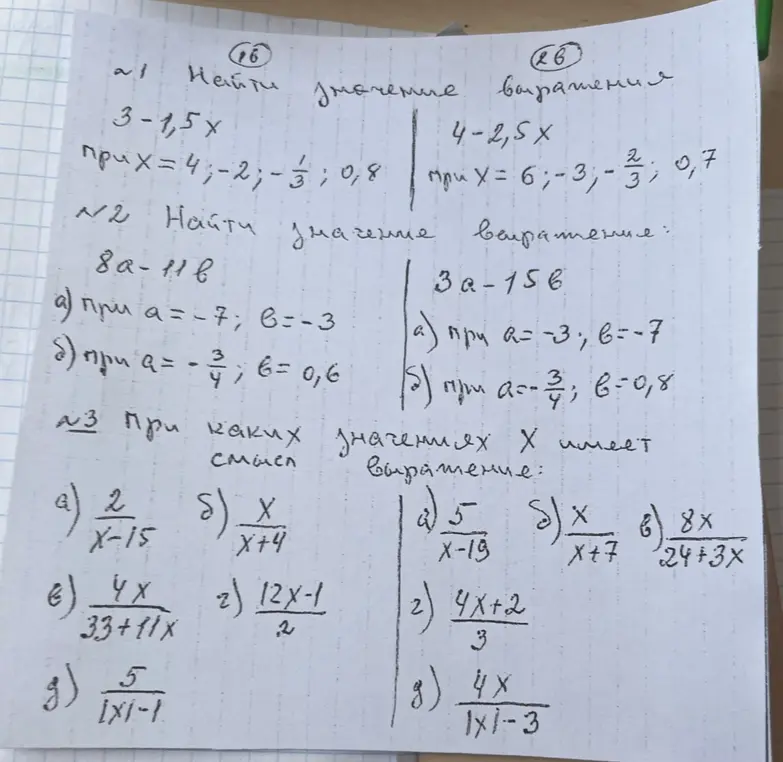 1в 2в
№1 Найти значение выражения
3 - 1,5x
при x = 4; -2; -1/3; 0,8
4 - 2,5x
при x = 6; -3; -2/3; 0,7
№2 Найти значение выражения:
8a - 11в
а) при a = -7; в = -3
б) при a = -3/4; в = 0,6
3a - 15в
а) при a = -3; в = -7
б) при a = -3/4; в = 0,8
№3 При каких значениях x имеет
смысл выражение:
а) 2/(x-15) б) x/(x+4)
в) 4x/(33+11x) г) (12x-1)/2
д) 5/(|x|-1)
а) 5/(x-19) б) x/(x+7) в) 8x/(24+3x)
г) (4x+2)/3
д) 4x/(|x|-3)